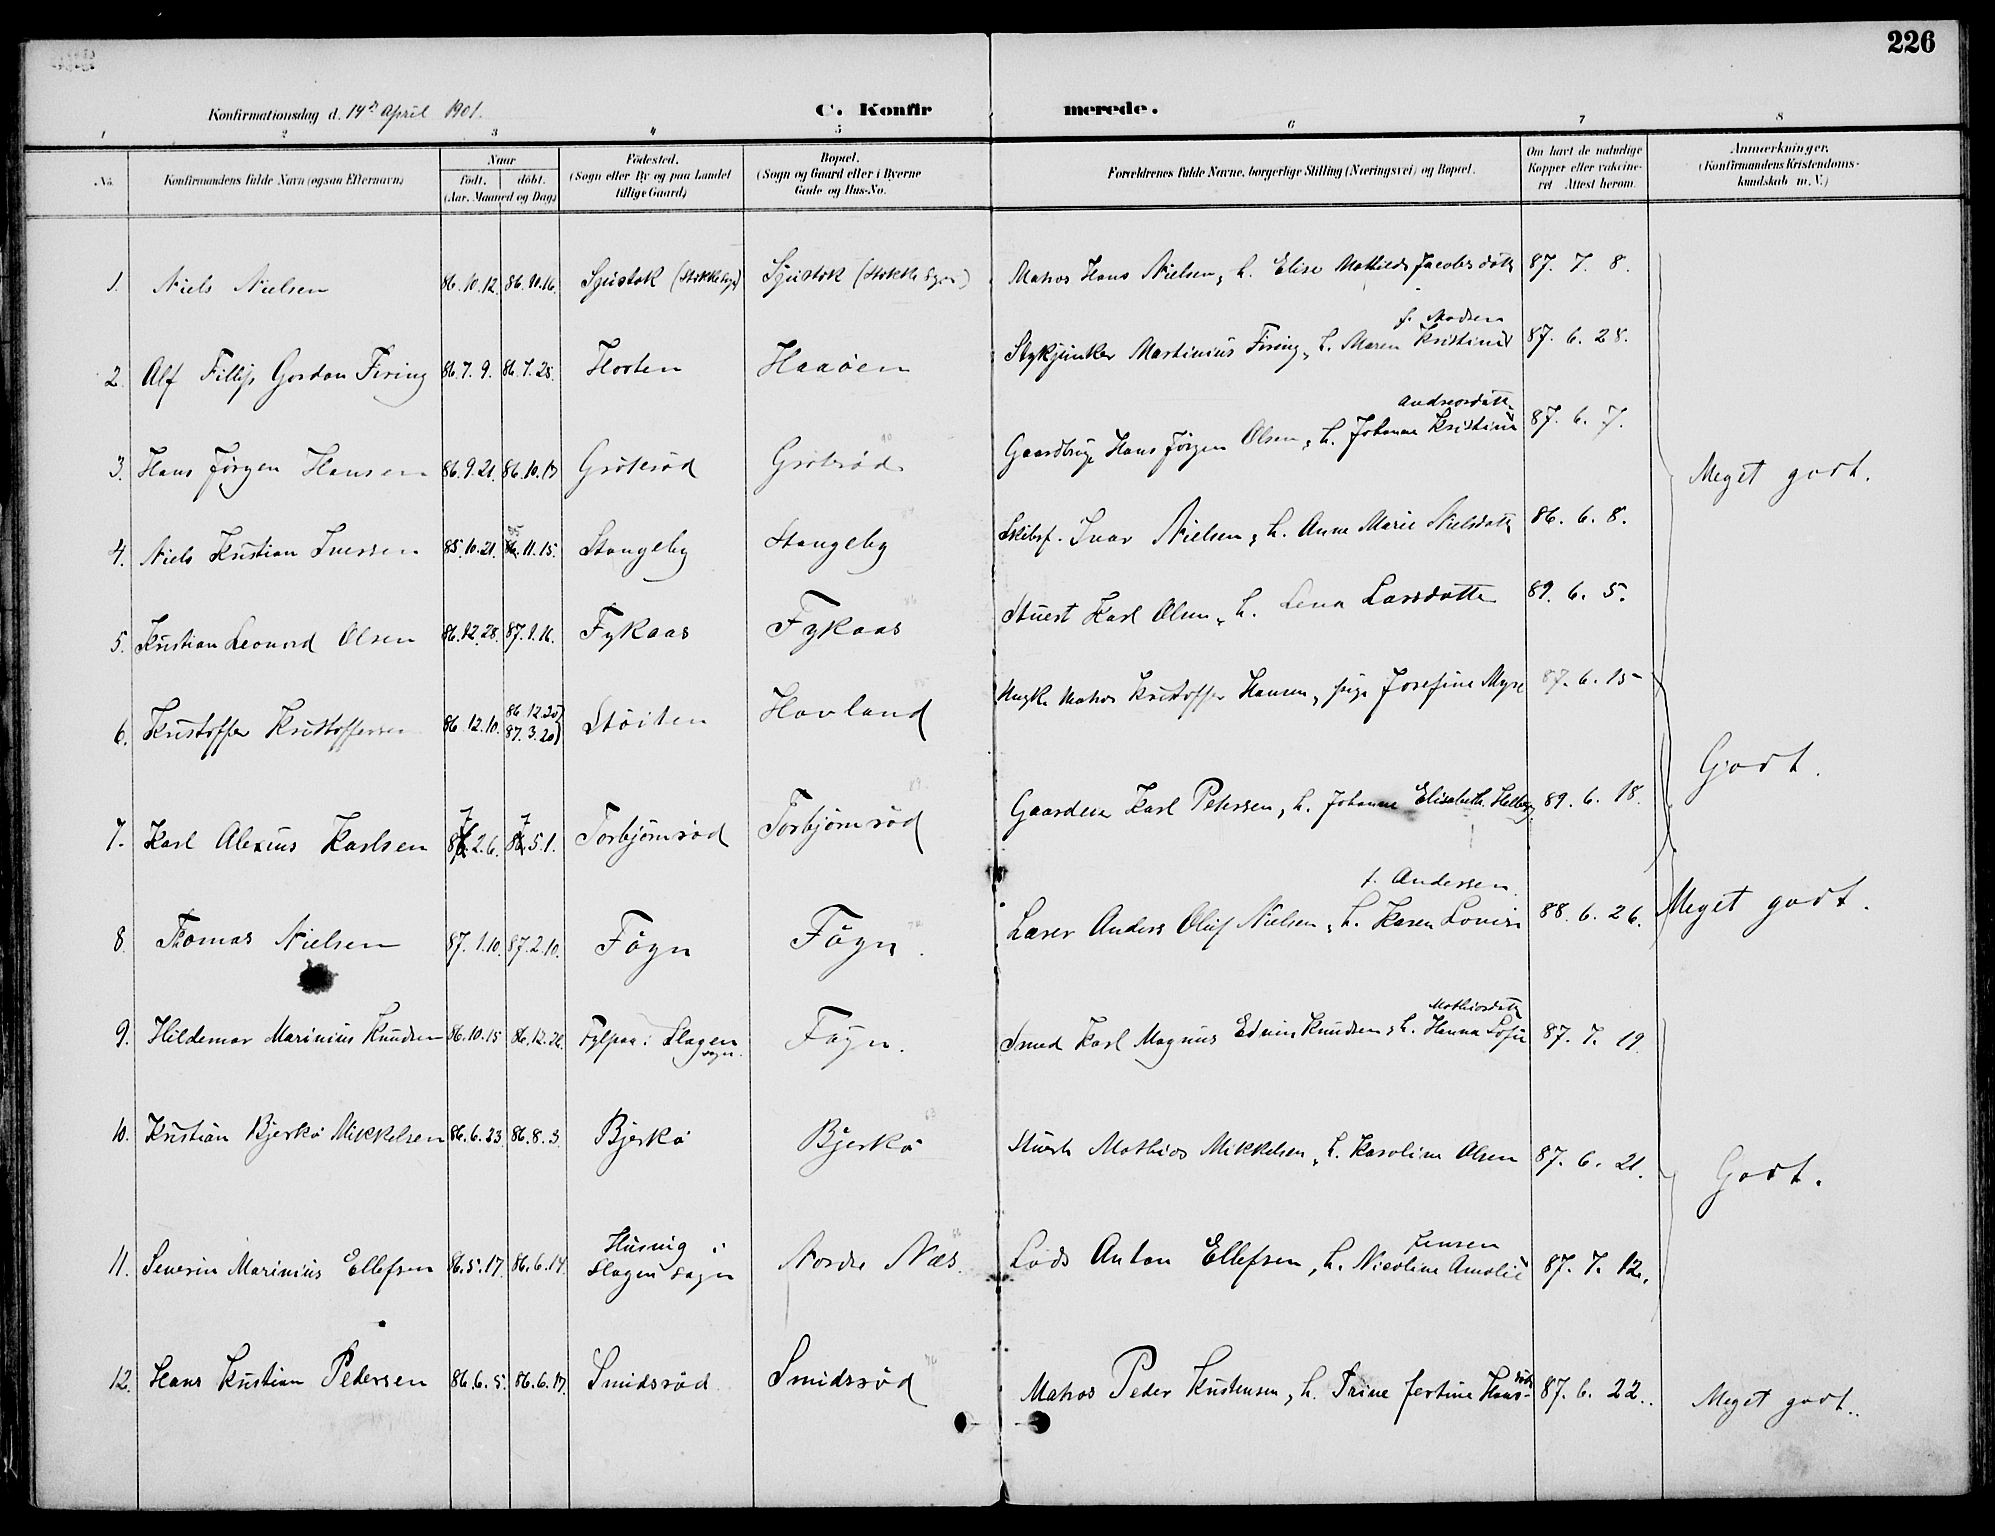 226
Konfirmationsdag d. 14de April 1901.
C. Konfirmerede.
1 2 3 4 5 6 7 8
No.
Konfirmandens fulde Navn (ogsaa Efternavn)
Naar
født. døbt.
(Aar, Maaned og Dag)
Fødested.
(Sogn eller By og paa Landet
tillige Gaard)
Bopæl.
(Sogn og Gaard eller i Byerne
Gade og Hus-No.
Forældrenes fulde Navne, borgerlige Stilling (Næringsvei) og Bopæl.
Om havt de naturlige
Kopper eller vakcine-
ret Attest herom.
Anmærkninger.
(Konfirmandens Kristendoms-
kundskab m. V.)
1. Niels Nielsen 86.10.12. Sjustok Sjustok Matros Hans Nielsen, h. Elise Mathilde Jacobsdattr 87. 7. 8.
f. Madsen
2. Alf Fillip Gordon Firing 86.7.9. 86.7.25. Horten Haaøen Stykjunker Martinius Firing, h. Maren Kristine 87. 6. 28.
Andreasdattr
3. Hans Jørgen Hansen 86.9.21. 86.10.17 Grøterød Grøterød Gaardbrug. Hans Jørgen Olsen, h. Johanne Kristine 87. 6. 7.
Meget godt.
4. Niels Kristian Iversen 85.10.21. 11.15. Stangeby Stangeby Skibsf. Ivar Nielsen, h. Anne Marie Nielsdattr 86. 6. 8.
5. Kristian Leonard Olsen 86.12.28. 87.1.16. Fykaas Fykaas Stuert Karl Olsen, h. Lena Larsdatter 89. 6. 5.
86.12.25
6. Kristoffer Kristoffersen 86.12.10. 87.3.20 Støiten Havland Ungk. Matros Kristoffer Hansen, pige Josefine Myre 87. 6. 15
Godt.
7. Karl Alexius Karlsen 87.2.6. 87.5.1. Torbjørnrød Torbjørnrød Gaardeier Karl Petersen, h. Johanne Elisabeth Helberg 89. 6. 18.
f. Andersen
8. Thomas Nielsen 87.1.10. 87.2.10. Føyn Føyn. Lærer Anders Oluf Nielsen, h. Karen Lovise 88. 6. 26. Meget godt.
Mathiasdattr
9. Hildemar Marinius Knudsen 86.10.15 86.12.26. Fylpaa i Slagen sogn. Føyn. Smed Karl Magnus Edvin Knudsen, h. Hanna Sofie 87. 7. 19.
10. Kristian Bjerkø Mikkelsen 86.6.23. 86.8.3. Bjerkø Bjerkø Stuert Mathias Mikkelsen, h. Karoline Olsen 87. 6. 21.
Godt.
Jensen
11. Severin Marinius Ellefsen 86.5.17. 86.6.14. Husvig i Slagen sogn Nordre Næs. Lods Anton Ellefsen, h. Nicoline Amalie 87. 7. 12.
12. Hans Kristian Pedersen 86.6.5. 86.6.17. Smidsrød Smidsrød Matros Peder Kristensen, h. Trine Jertine Hans- 87. 6. 22. Meget godt.